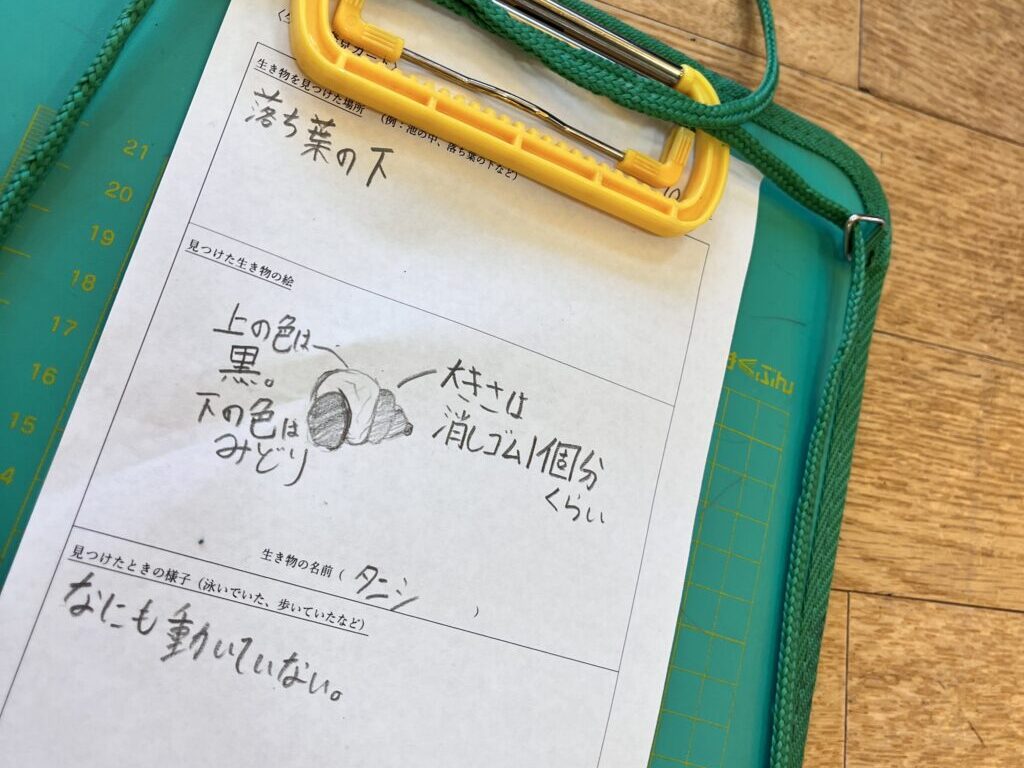 生き物を見つけた場所 (例:池の中、落ち葉の下など)
落ち葉の下
見つけた生き物の絵
上の色は
黒。
下の色は
みどり
大きさは
消しゴム1個分
くらい
生き物の名前( タニシ )
見つけたときの様子(泳いでいた、歩いていたなど)
なにも動いていない。
21
20
19
18
17
16
15
4